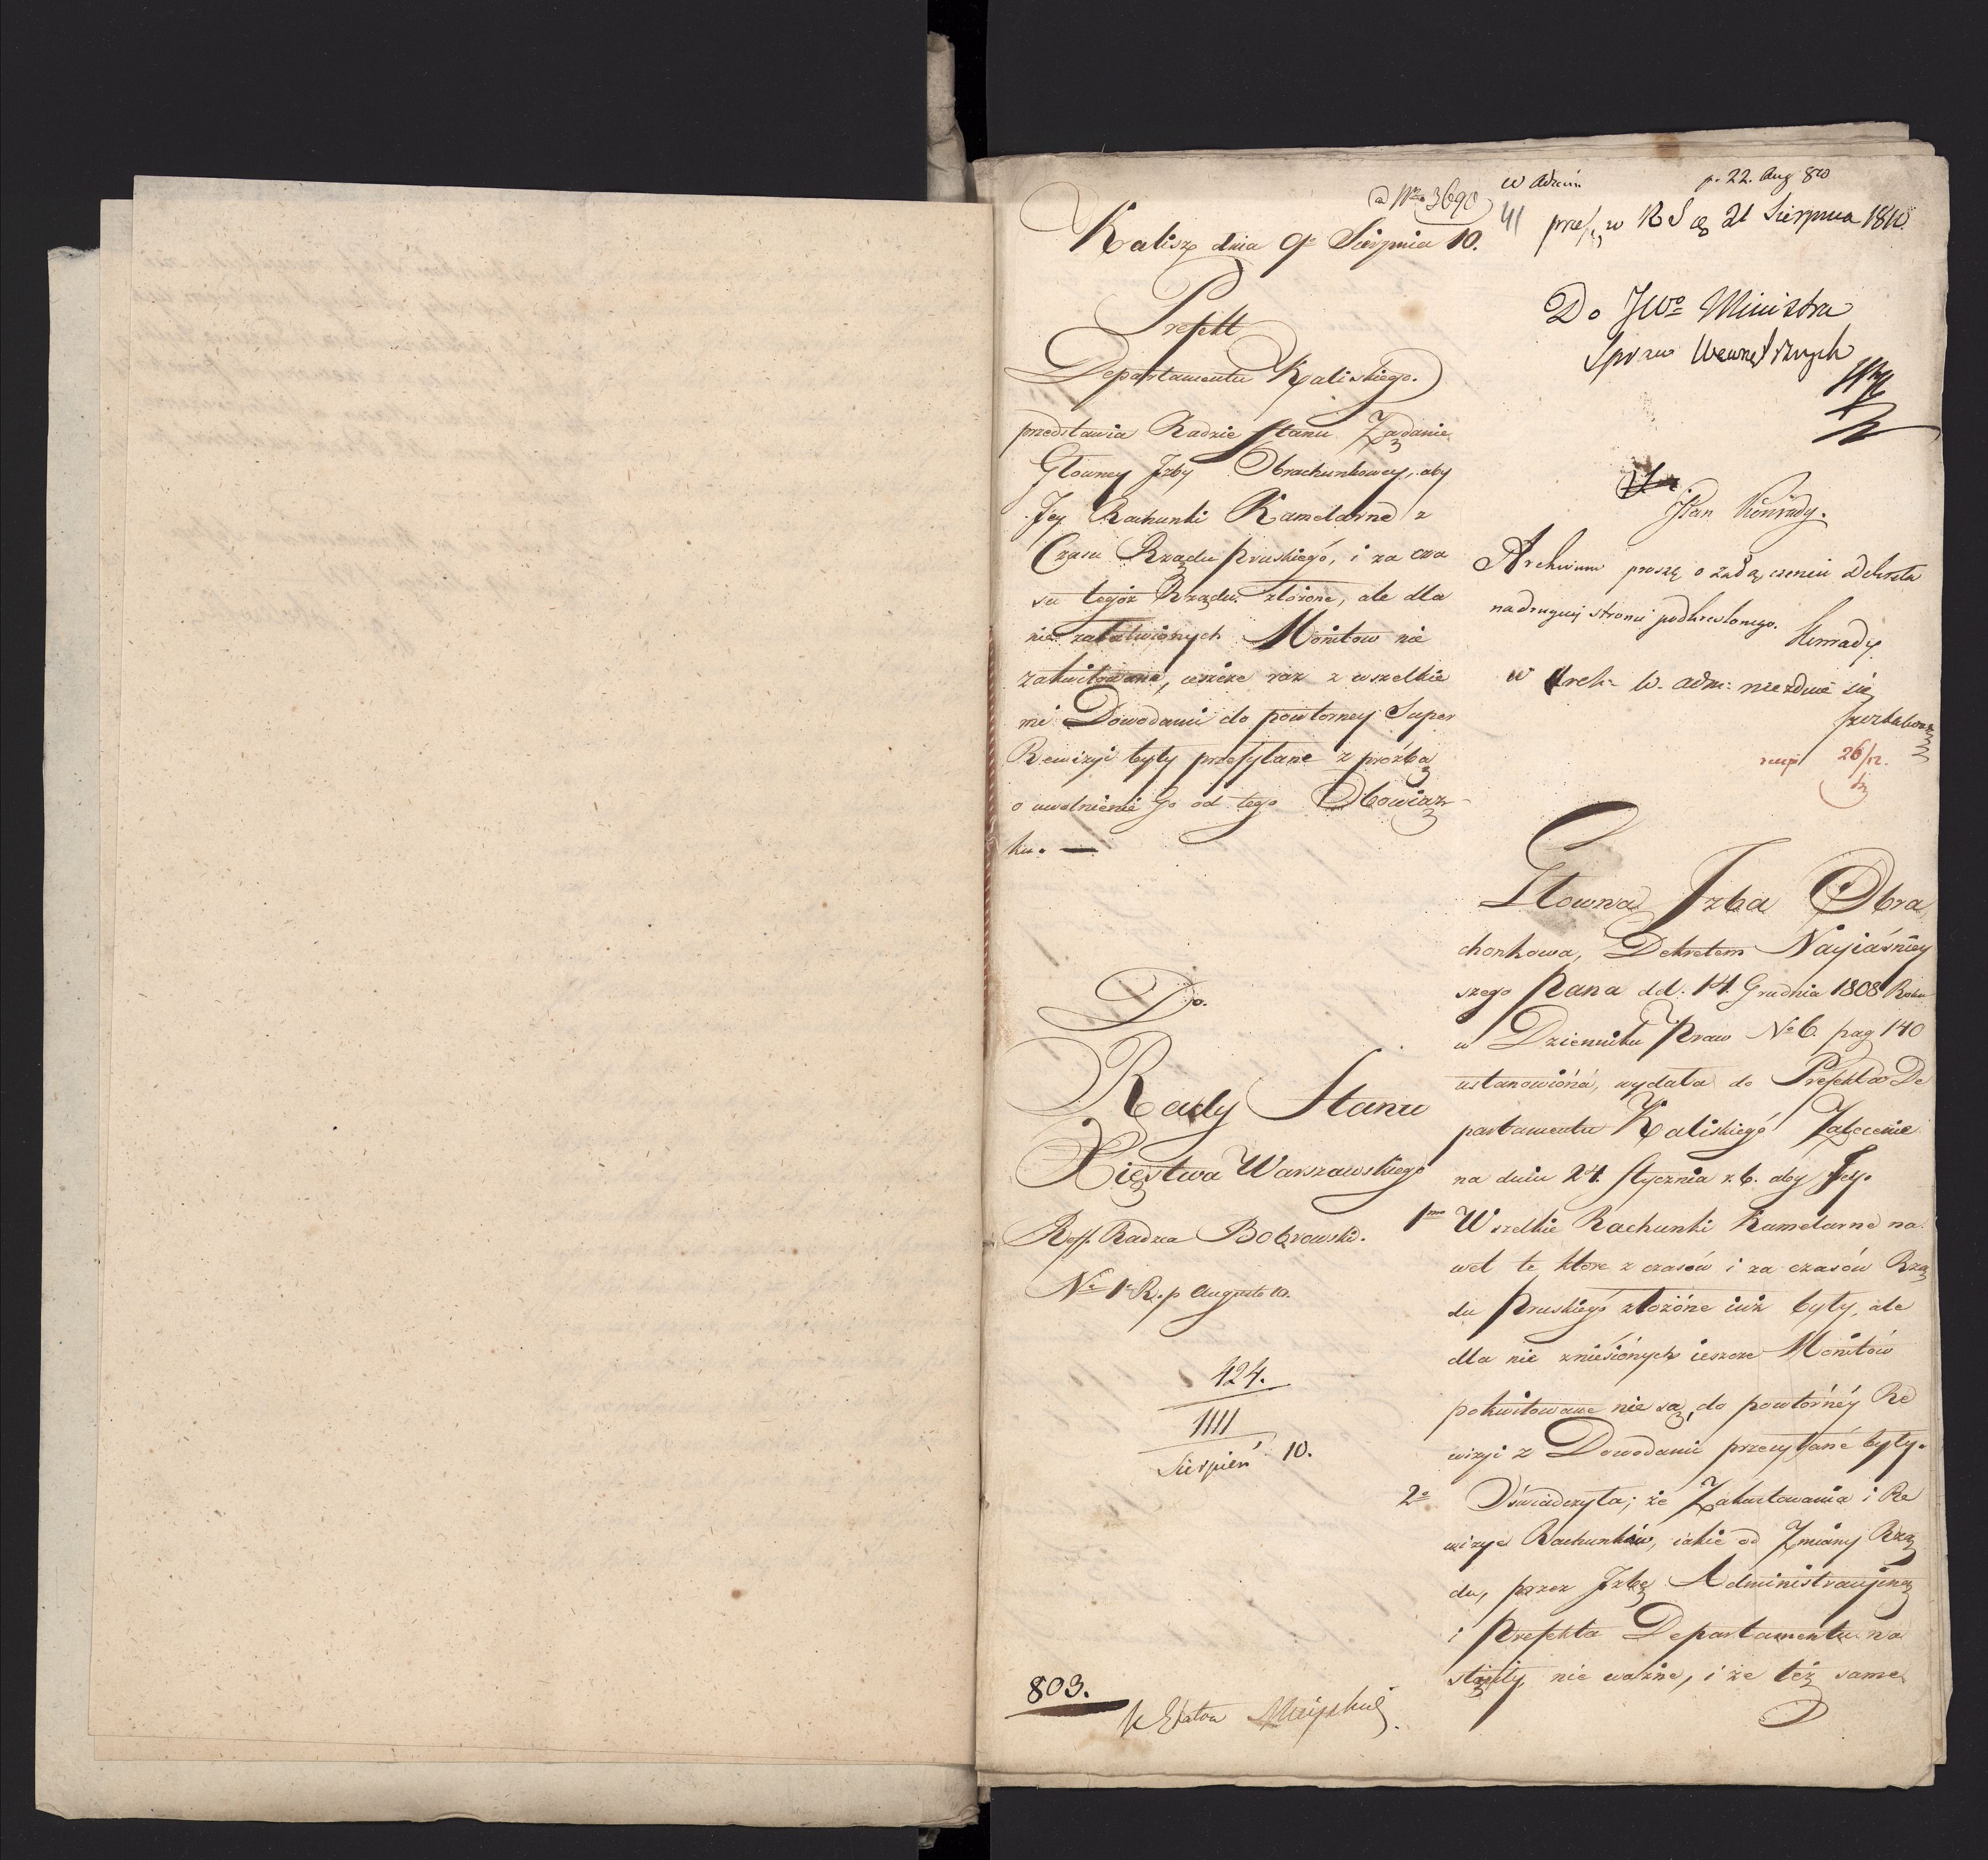 ad Nro 3690
w Admin
p. 22. Aug 810
41
Kalisz dnia 9o Sierpnia 10.
praes. w RS d. 21 Sierpnia 1810.
Prefekt
Departamentu Kaliskiego.
przedstawia Radzie Stanu Żądanie
Głowney Jzby Obrachunkowey, aby
Jey Rachunki Kamelarne z
Czasu Rządu Pruskiego, i za cza
su tegoż Rządu złożone, ale dla
nie załatwionych Monitow nie
zakwitowane, ieszcze raz z wszelkie
mi Dowodami do powtorney Super
Rewizyi były przesyłane z prośbą
o uwolnienie Go od tego Obowiąz-
ku. —
Do
Rady Stanu
Xięstwa Warszawskiego
Reff. Radca Bobrowski.
No 1o R. p Augusto 10.
424.
1111
Sierpień 10.
803.
Do JWo Ministra
Spraw Wewnętrznych
JPan Konrady.
Archiwum proszę o załączenie Dekretu
na drugiej stronie podkreslonego.
w Arch: W. adm: nie zdane się
26/12.
Głowna Jzba Obra
chonkowa, Dekretem Nayiaśniey
szego Pana dd. 14. Grudnia 1808 Roku
w Dzienniku Praw No 6. pag 140
ustanowióna, wydała do Prefekta De
partamentu Kaliskiego Zalecenie
na dniu 24. Stycznia r. b. aby Jey.
1mo Wszelkie Rachunki Kamelarne na
wet te ktore z czasów i za czasów Rzą
du Pruskiego złożóne iuż były, ale
dla nie zniesiónych ieszcze Monitów
pokwitowane nie są, do powtórnéy Re
wizyi z Dowodami przesyłane były.
2o Oświadczyła; że Zakwitowania i Re
wizye Rachunków, iakie od Zmiany Rzą
du, przez Jzbę Administracyiną
i Prefekta Departamentu na
stąpiły, nie ważne, i że też same